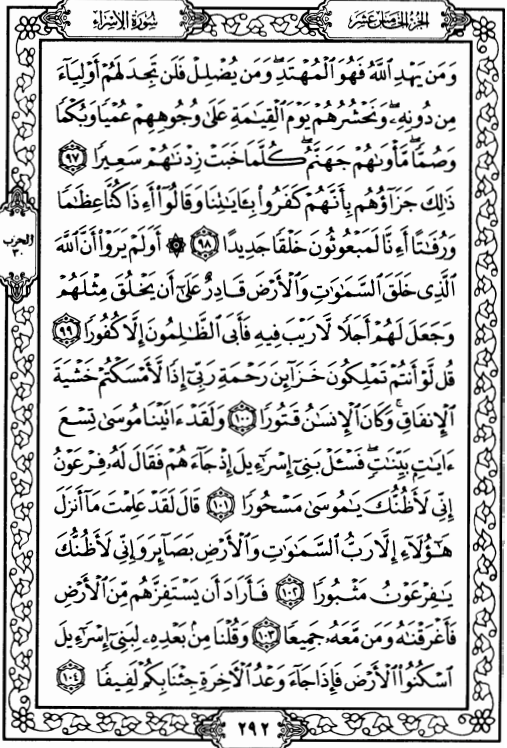 سُورَةُ الإِسْرَاءِ
الجُزْءُ الخَامِسَ عَشَرَ
وَمَن يَهْدِ ٱللَّهُ فَهُوَ ٱلْمُهْتَدِ ۖ وَمَن يُضْلِلْ فَلَن تَجِدَ لَهُمْ أَوْلِيَآءَ
مِن دُونِهِۦ ۖ وَنَحْشُرُهُمْ يَوْمَ ٱلْقِيَـٰمَةِ عَلَىٰ وُجُوهِهِمْ عُمْيًا وَبُكْمًا
وَصُمًّا ۖ مَّأْوَىٰهُمْ جَهَنَّمُ ۖ كُلَّمَا خَبَتْ زِدْنَـٰهُمْ سَعِيرًا ﴿٩٧﴾
ذَٰلِكَ جَزَآؤُهُم بِأَنَّهُمْ كَفَرُوا۟ بِـَٔايَـٰتِنَا وَقَالُوٓا۟ أَءِذَا كُنَّا عِظَـٰمًا
وَرُفَـٰتًا أَءِنَّا لَمَبْعُوثُونَ خَلْقًا جَدِيدًا ﴿٩٨﴾ ۞ أَوَلَمْ يَرَوْا۟ أَنَّ ٱللَّهَ
ٱلَّذِى خَلَقَ ٱلسَّمَـٰوَٰتِ وَٱلْأَرْضَ قَادِرٌ عَلَىٰٓ أَن يَخْلُقَ مِثْلَهُمْ
وَجَعَلَ لَهُمْ أَجَلًا لَّا رَيْبَ فِيهِ فَأَبَى ٱلظَّـٰلِمُونَ إِلَّا كُفُورًا ﴿٩٩﴾
قُل لَّوْ أَنتُمْ تَمْلِكُونَ خَزَآئِنَ رَحْمَةِ رَبِّىٓ إِذًا لَّأَمْسَكْتُمْ خَشْيَةَ
ٱلْإِنفَاقِ ۚ وَكَانَ ٱلْإِنسَـٰنُ قَتُورًا ﴿١٠٠﴾ وَلَقَدْ ءَاتَيْنَا مُوسَىٰ تِسْعَ
ءَايَـٰتٍۭ بَيِّنَـٰتٍ ۖ فَسْـَٔلْ بَنِىٓ إِسْرَٰٓءِيلَ إِذْ جَآءَهُمْ فَقَالَ لَهُۥ فِرْعَوْنُ
إِنِّى لَأَظُنُّكَ يَـٰمُوسَىٰ مَسْحُورًا ﴿١٠١﴾ قَالَ لَقَدْ عَلِمْتَ مَآ أَنزَلَ
هَـٰٓؤُلَآءِ إِلَّا رَبُّ ٱلسَّمَـٰوَٰتِ وَٱلْأَرْضِ بَصَآئِرَ وَإِنِّى لَأَظُنُّكَ
يَـٰفِرْعَوْنُ مَثْبُورًا ﴿١٠٢﴾ فَأَرَادَ أَن يَسْتَفِزَّهُم مِّنَ ٱلْأَرْضِ
فَأَغْرَقْنَـٰهُ وَمَن مَّعَهُۥ جَمِيعًا ﴿١٠٣﴾ وَقُلْنَا مِنۢ بَعْدِهِۦ لِبَنِىٓ إِسْرَٰٓءِيلَ
ٱسْكُنُوا۟ ٱلْأَرْضَ فَإِذَا جَآءَ وَعْدُ ٱلْـَٔاخِرَةِ جِئْنَا بِكُمْ لَفِيفًا ﴿١٠٤﴾
الحزب
٣٠
٢٩٢